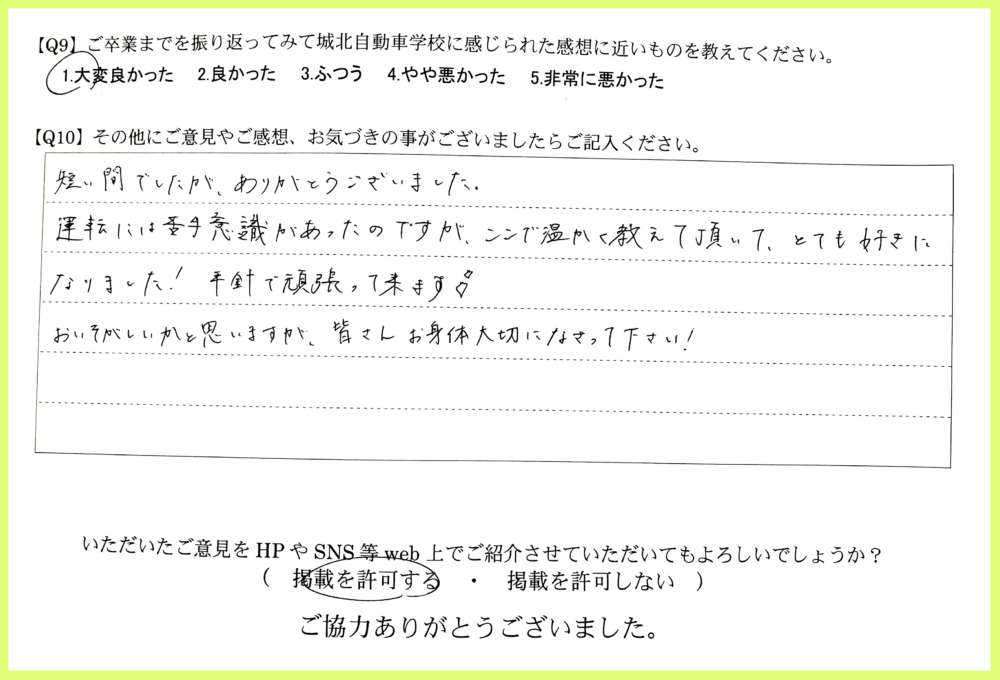 【Q9】ご卒業までを振り返ってみて城北自動車学校に感じられた感想に近いものを教えてください。
1.大変良かった 2.良かった 3.ふつう 4.やや悪かった 5.非常に悪かった
【Q10】その他にご意見やご感想、お気づきの事がございましたらご記入ください。
短い間でしたが、ありがとうございました。
運転には苦手意識があったのですが、ここで温かく教えて頂いて、とても好きに
なりました! 平針で頑張って来ます
おいそがしいかと思いますが、皆さんお身体大切になさって下さい!
いただいたご意見をHPやSNS等web上でご紹介させていただいてもよろしいでしょうか?
( 掲載を許可する ・ 掲載を許可しない )
ご協力ありがとうございました。